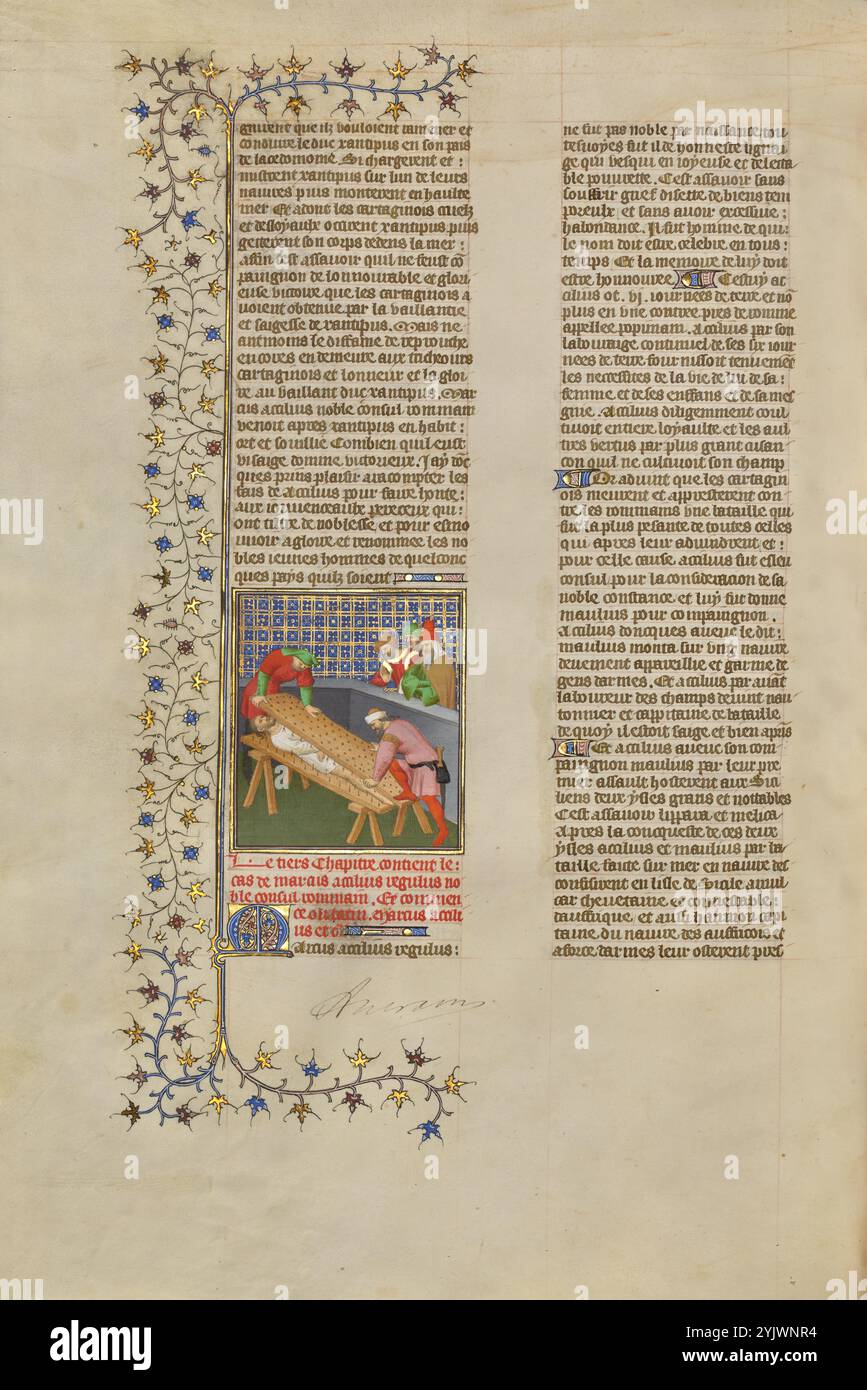 gnirent que ilz vouloient ramener et
conduire le duc xantipus en son pais
de lacedomome. Si chargerent et:
mistrent xantipus sur lun de leurs
navires puis monterent en haulte
mer Et adont les cartaginois cruelz
et desloyaulx occirent xantipus puis
getterent son corps dedens la mer:
affin cest assavoir quil ne feust com
paignon de lonnourable et glori
euse victoire que les cartaginois a
voient obtenue par la vaillantie
et saigesse de xantipus. Mais ne
antmoins le diffame de reprouche
encores en demeure aux tricheurs
cartaginois et lonneur et la gloi
re au vaillant duc xantipus. Mar
cus actilius noble consul rommain
venoit apres xantipus en habit:
ort et soullie Combien quil eust
visaige domme victorieux. Jay donc
ques prins plaisir a racompter les
fais de actilius pour faire honte:
aux iouvenceaulx pereceux qui:
ont tiltre de noblesse et pour esmo
uvoir a gloire et renommee les no
bles ieunes hommes de quelconc
ques pays quilz soient
Le tiers Chapitre contient le:
cas de marcus actilius regulus no
ble consul rommain. Et commen
ce ou latin. Marcus actili
us et c̃
Marcus actilius regulus:
ne fut pas noble par naissance tou
tesvoyes fut il de honneste lignai
ge qui vesqui en ioyeuse et delecta
ble pouvrette. Cest assavoir sans
souffrir grief disette de biens tem
poreulx et sans avoir excessive:
habondance. Il fut homme de qui:
le nom doit estre celebre en tous:
temps Et la memoire de luy doit
estre honnouree Cestuy ac
cilius ot .vj. iournees de terre et non
plus en une contree pres de romme
appellee popinam. Actilius par son
labouraige continuel de ses six iour
nees de terre fournissoit tenuement
les necessites de la vie de lui de sa:
femme et de ses enffans et de sa mes
gnie. Actilius diligemment coul
tivoit entiere loyaulte et les aul
tres vertus par plus grant cusan
con quil ne cultivoit son champ
Or advint que les cartagin
ois meurent et appresterent con
tre les rommains une bataille qui
fut la plus pesante de toutes celles
qui apres leur advindrent et:
pour celle cause actilius fut esleu
consul pour la consideracion de sa
noble constance et luy fut donne
maulius pour compaignon.
Actilius doncques avecc le dit:
maulius monta sur ung navire
deuement appareille et garnie de
gens darmes. Et actilius par avant
laboureur des champs devint nau
tonnier et cappitaine de bataille
de quoy il estoit saige et bien apris
Et actilius avecc son com
paignon maulius par leur pre
mier assault hosterent aux Sici
liens deux ysles grans et nottables
Cest assavoir lippara et melica
Apres la concqueste de ces deux
ysles actilius et maulius par ba
taille faicte sur mer en navire des
confisirent en lisle de Sicile amil
car chevetaine et connestable:
dauffrique et aussi hannon capi
taine du navire des auffricois et
a force darmes leur osterent pres
a alamy
alamy
Image ID: 2YJWNR4
www.alamy.com